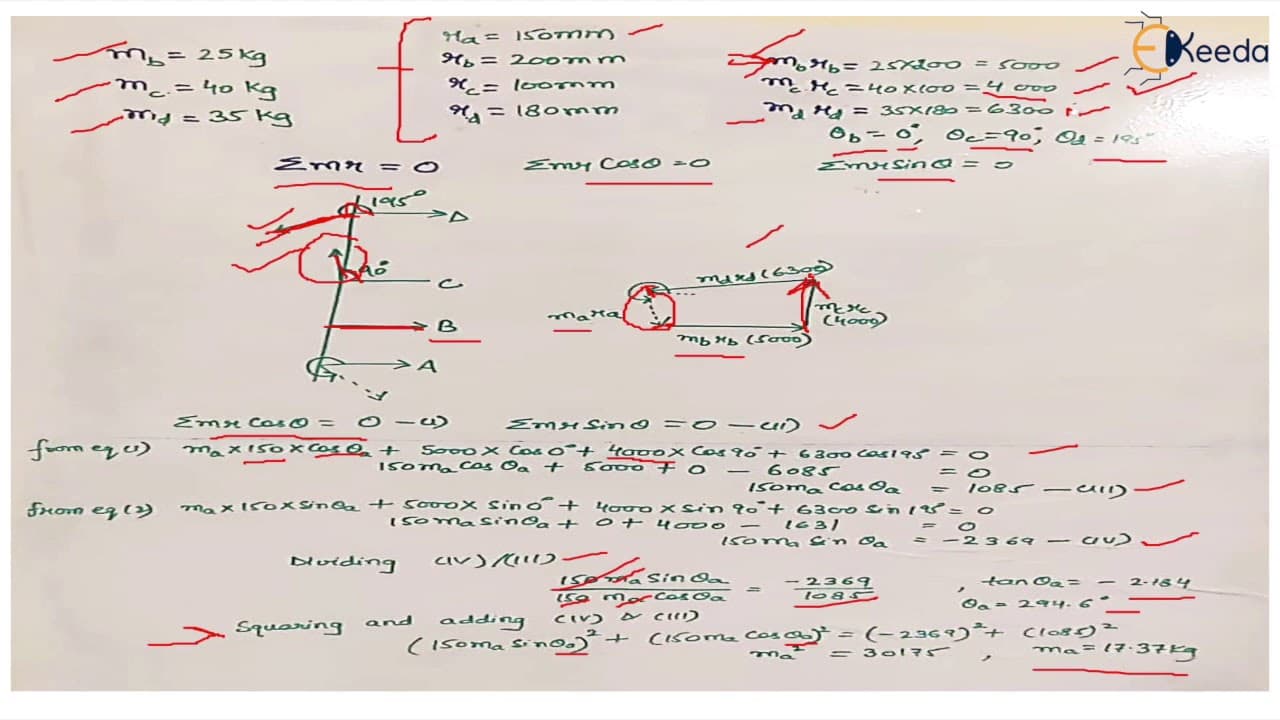 m_b = 25 kg
m_c = 40 kg
m_d = 35 kg
r_a = 150mm
r_b = 200mm
r_c = 100mm
r_d = 180mm
m_b r_b = 25×200 = 5000
m_c r_c = 40×100 = 4000
m_d r_d = 35×180 = 6300
θ_b = 0°, θ_c = 90°, θ_d = 195°
EKeeda
Σmr = 0
Σmr cosθ = 0
Σmr sinθ = 0
195°
D
90°
C
B
A
m_d r_d (6300)
m_a r_a
m_c r_c
(4000)
m_b r_b (5000)
Σmr cosθ = 0 - (I)
Σmr sinθ = 0 - (II)
from eq (1) m_a × 150 × cosθ_a + 5000 × cos0° + 4000 × cos90° + 6300 cos195 = 0
150m_a cosθ_a + 5000 + 0 - 6085 = 0
150m_a cosθ_a = 1085 - (III)
from eq (2) m_a × 150 × sinθ_a + 5000 × sin0° + 4000 × sin90° + 6300 sin195° = 0
150m_a sinθ_a + 0 + 4000 - 1631 = 0
150m_a sinθ_a = -2369 - (IV)
Dividing (IV)/(III)
150 m_a sinθ_a / 150 m_a cosθ_a = -2369 / 1085 , tanθ_a = - 2.184
θ_a = 294.6°
Squaring and adding (IV) & (III)
(150m_a sinθ_a)² + (150m_a cosθ_a)² = (-2369)² + (1085)²
m_a² = 30175 , m_a = 17.37kg